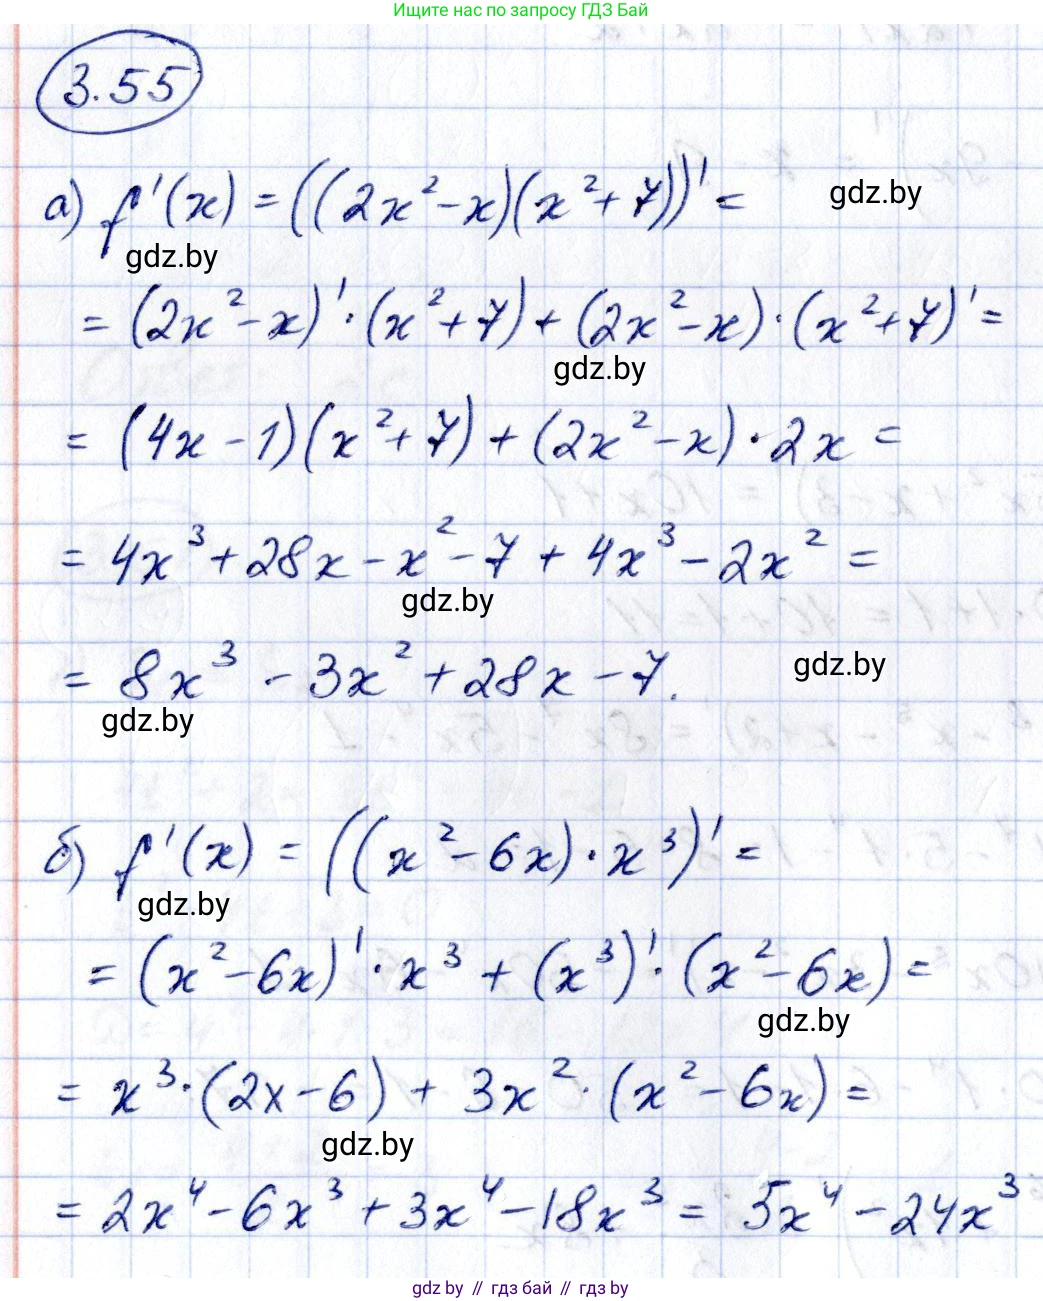 Ищите нас по запросу ГДЗ Бай
3.55
а) f'(x) = ((2x²-x)(x²+7))' =
gdz.by
gdz.by
= (2x²-x)'·(x²+7) + (2x²-x)·(x²+7)' =
gdz.by
= (4x-1)(x²+7) + (2x²-x)·2x =
= 4x³+28x-x²-7+4x³-2x² =
gdz.by
= 8x³-3x²+28x-7.
gdz.by
gdz.by
б) f'(x) = ((x²-6x)·x³)' =
gdz.by
= (x²-6x)'·x³ + (x³)'·(x²-6x) =
gdz.by
= x³·(2x-6) + 3x²·(x²-6x) =
gdz.by
= 2x⁴-6x³+3x⁴-18x³ = 5x⁴-24x³
gdz by // гдз бай // gdz by